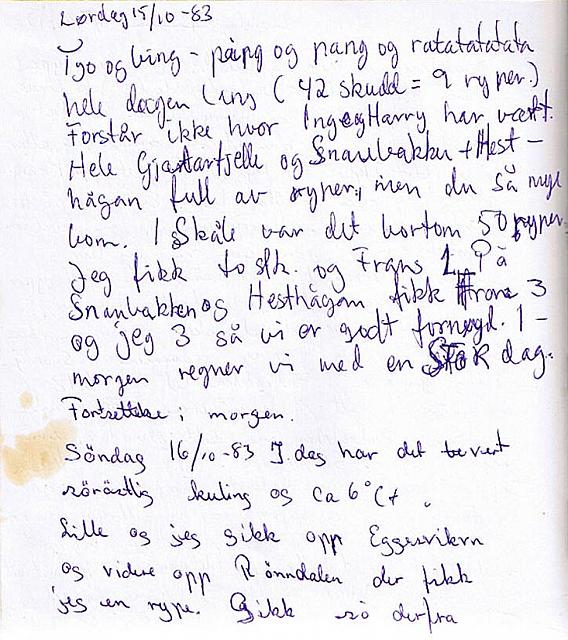 Lørdag 15/10-83
og bing - pang og pang og ratatatatata
hele dagen lang (42 skudd = 9 ryper.)
Forstår ikke hvor Ing og Harry har vært.
Hele Gjætarfjelle og Snaubakken + Hest-
hågan full av ryper, men du så mye
kom. I Skåle var det bortom 50 ryper.
Jeg fikk to stk. og Frans 1. På
Snaubakken og Hesthågan fikk Frans 3
og jeg 3 så vi er godt fornøyd. I-
morgen regner vi med en STOR dag.
Fortsettelse i morgen.
Söndag 16/10-83 I dag har det
söröstlig kuling og ca 6°C+.
Lille og jeg gikk opp Eggesvikvn
og videre opp Rönndalen der fikk
jeg en rype. Gikk så derfra